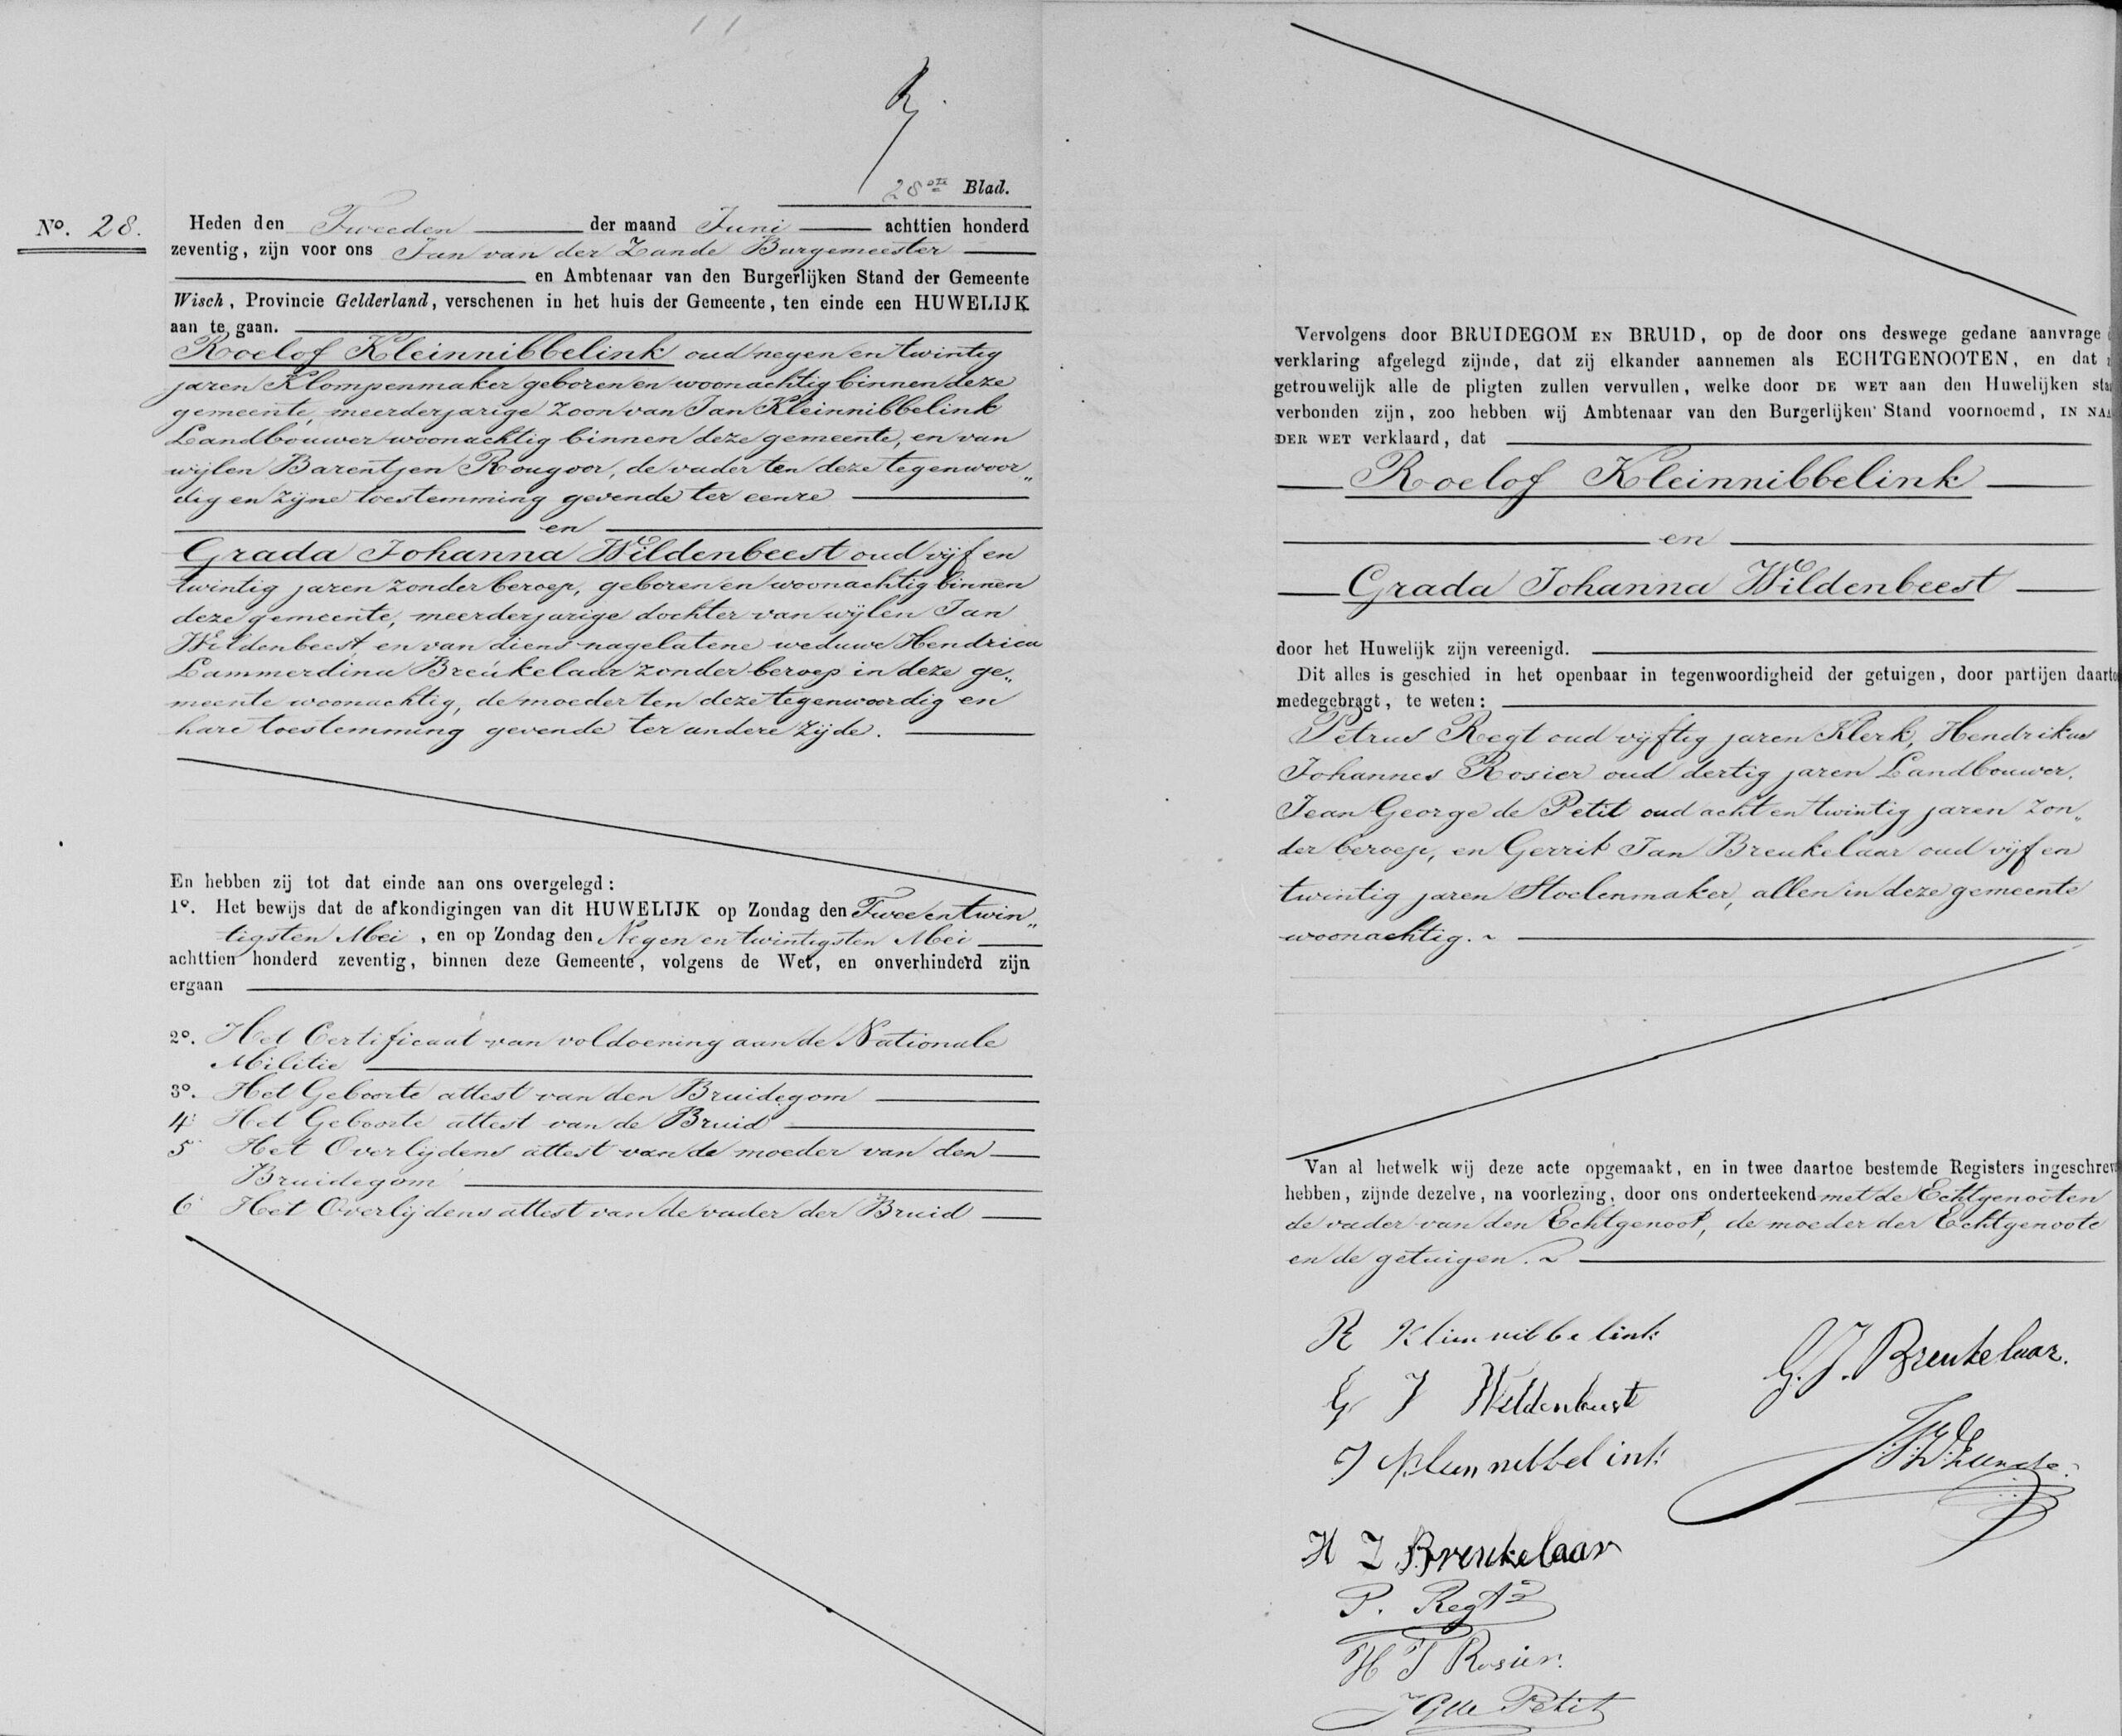 28ste Blad.
No. 28.
Heden den Tweeden der maand Juni achttien honderd
zeventig, zijn voor ons Jan van der Zande Burgemeester
en Ambtenaar van den Burgerlijken Stand der Gemeente
Wisch, Provincie Gelderland, verschenen in het huis der Gemeente, ten einde een HUWELIJK
aan te gaan.
Roelof Kleinnibbelink oud negen en twintig
jaren Klompenmaker geboren en woonachtig binnen deze
gemeente, meerderjarige zoon van Jan Kleinnibbelink
Landbouwer woonachtig binnen deze gemeente, en van
wijlen Barentjen Rougoor, de vader ten deze tegenwoor„
dig en zijne toestemming gevende ter eenre
en
Grada Johanna Wildenbeest oud vijf en
twintig jaren zonder beroep, geboren en woonachtig binnen
deze gemeente, meerderjarige dochter van wijlen Jan
Wildenbeest en van diens nagelatene weduwe Hendrica
Lammerdina Breukelaar zonder beroep in deze ge„
meente woonachtig, de moeder ten deze tegenwoordig en
hare toestemming gevende ter andere zijde.
En hebben zij tot dat einde aan ons overgelegd:
1o. Het bewijs dat de afkondigingen van dit HUWELIJK op Zondag den Twee en twin„
tigsten Mei, en op Zondag den Negen en twintigsten Mei
achttien honderd zeventig, binnen deze Gemeente, volgens de Wet, en onverhinderd zijn
ergaan
2o. Het Certificaat van voldoening aan de Nationale
Militie
3o. Het Geboorte attest van den Bruidegom
4 Het Geboorte attest van de Bruid
5 Het Overlijdens attest van de moeder van den
Bruidegom
6 Het Overlijdens attest van de vader der Bruid
Vervolgens door BRUIDEGOM EN BRUID, op de door ons deswege gedane aanvrage
verklaring afgelegd zijnde, dat zij elkander aannemen als ECHTGENOOTEN, en dat
getrouwelijk alle de pligten zullen vervullen, welke door DE WET aan den Huwelijken sta
verbonden zijn, zoo hebben wij Ambtenaar van den Burgerlijken Stand voornoemd, IN NAA
DER WET verklaard, dat
Roelof Kleinnibbelink
en
Grada Johanna Wildenbeest
door het Huwelijk zijn vereenigd.
Dit alles is geschied in het openbaar in tegenwoordigheid der getuigen, door partijen daarto
medegebragt, te weten:
Petrus Regt oud vijftig jaren Klerk, Hendrikus
Johannes Rosier oud dertig jaren Landbouwer,
Jean George de Petit oud acht en twintig jaren zon„
der beroep, en Gerrit Jan Breukelaar oud vijf en
twintig jaren Stoelenmaker, allen in deze gemeente
woonachtig.
Van al hetwelk wij deze acte opgemaakt, en in twee daartoe bestemde Registers ingeschrev
hebben, zijnde dezelve, na voorlezing, door ons onderteekend met de Echtgenooten
de vader van den Echtgenoot, de moeder der Echtgenoote
en de getuigen.
R Kleinnibbelink
G J Wildenbeest
J Kleinnibbelink
H L Breukelaar
P. Regt
H J Rosier.
JG de Petit
G. J. Breukelaar.
J.V.D.Zande.